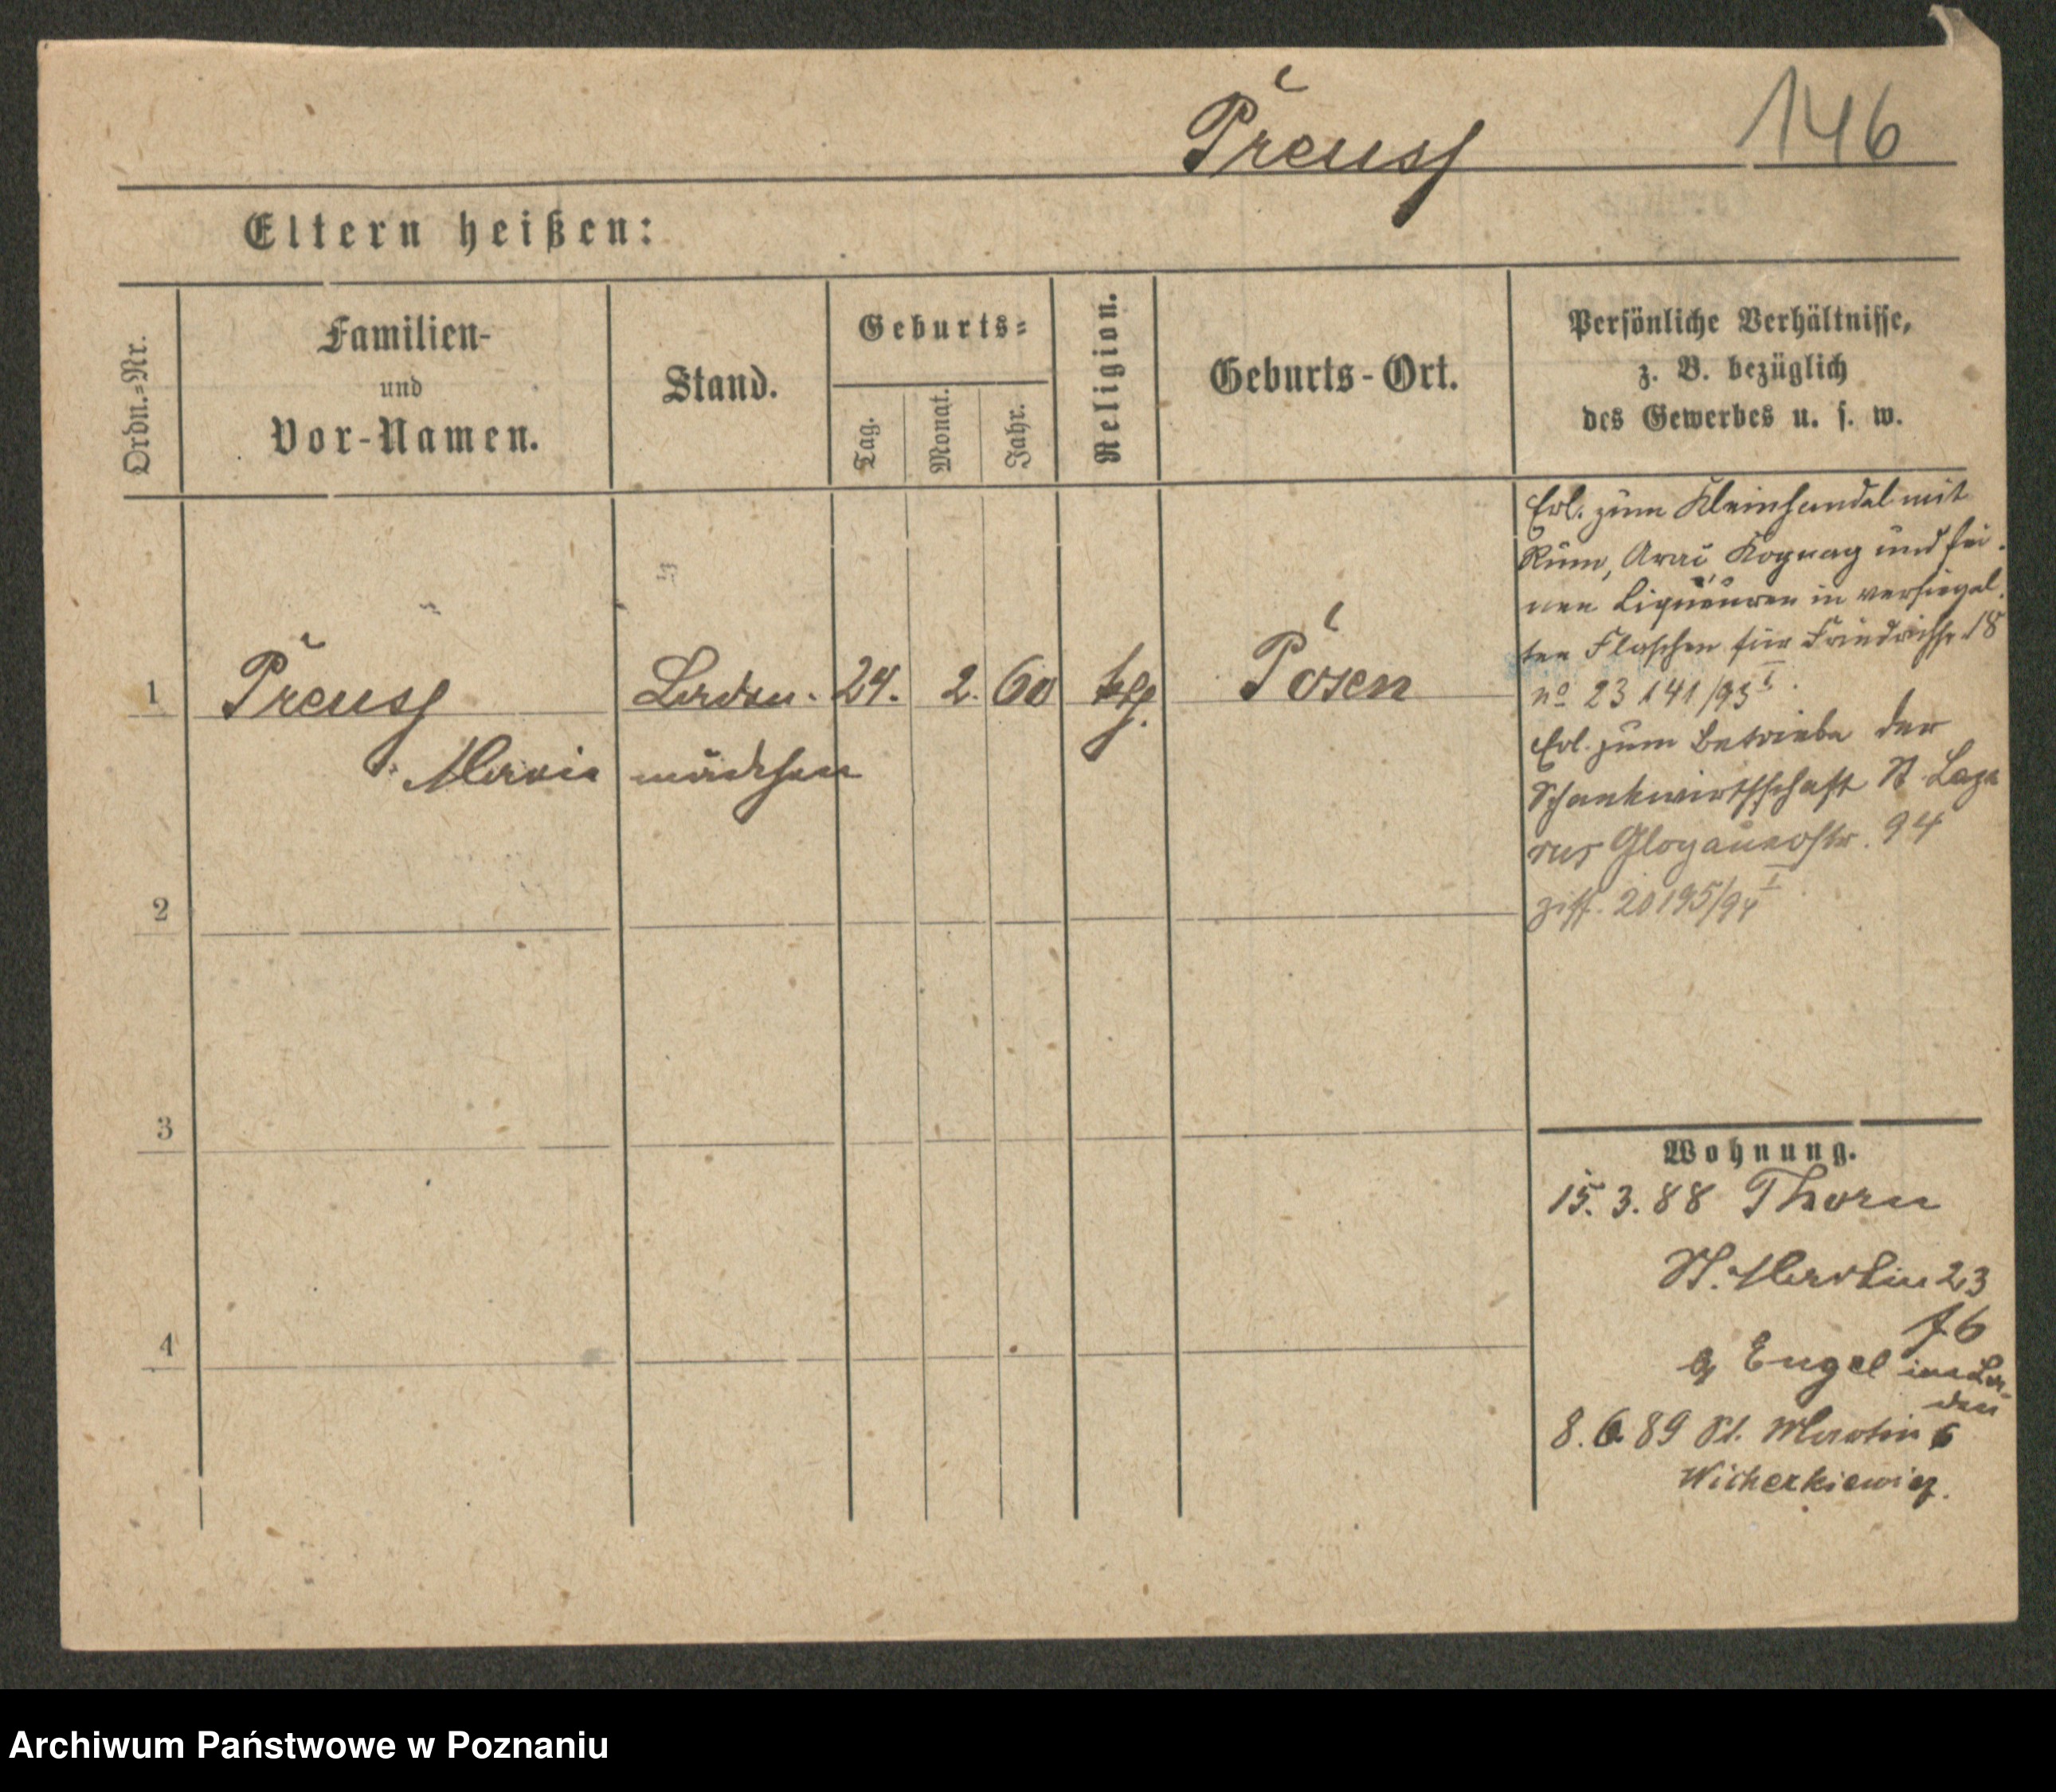 Preuss 146
Eltern heißen:
Ordn.=Nr.
Familien-
und
Vor-Namen.
Stand.
Geburts=
Tag.
Monat.
Jahr.
Religion.
Geburts-Ort.
Persönliche Verhältnisse,
z. B. bezüglich
des Gewerbes u. s. w.
1 Preuss Laden- 24. 2. 60 Posen
Maria mädchen
2
3
4
Erl. zum Kleinhandel mit
Rum, Arac Kognag und fei-
nen Liqueuren in versiegel-
ten Flaschen für Friedrichstr. 18
no 23141/93 I.
Erl. zum Betriebe der
Schankwirthschaft St. Laza
rus Glogauerstr. 94
ziff. 20195/94 I.
Wohnung.
15. 3. 88 Thorn
St. Martin 23
b/ Engel im La-
den
8. 6. 89 St. Martin 6
Wicherkiewicz.
Archiwum Państwowe w Poznaniu